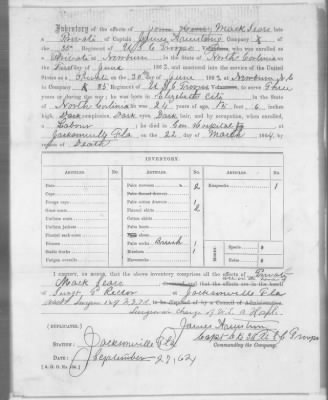 Inventory of the effects of Mack Sears late
a Private of Captain James Haustin's Company K of
the 35th Regiment of U S C Troops Volunteers, who was enrolled as
a Private at Newburn in the State of North Carolina
the First day of June 1863, and mustered into the service of the United
States as a Private on the 30th day of June 1863, at Newburn N.C
in Company K 35 Regiment of U S C Troops Volunteers, to serve Three
years or during the war; he was born in Elizabeth City in the State
of North Carolina; he was 24 years of age, 5 feet 6 inches
high, Dark complexion, Dark eyes, Dark hair, and by occupation, when enrolled,
a Labour; he died in Gen Hospital
at Jacksonville Fla on the 22 day of March 1864, by
reason of Death
INVENTORY.
ARTICLES. No. ARTICLES. No. ARTICLES. No.
Hats
Caps
Forage caps
Great-coats
Uniform coats
Uniform jackets
Flannel sack coats
Blouses
Stable frocks
Fatigue overalls
Pairs trowsers 2
Pairs flannel drawers
Pairs cotton drawers 1
Flannel shirts 2
Cotton shirts
Pairs boots
Pairs shoes
Pairs socks 1
Blankets
Haversacks
Knapsacks 1
MONEY.
Specie
Notes
I CERTIFY, ON HONOR, that the above inventory comprises all the effects of Private
Mack Sears deceased, and that the effects are in the hands
of at Jacksonville Fla
to be disposed of by a Council of Administration.
Surgeon in charge of U.S. A Hospl
James Haustin
Capt Co K 35th U S C Troops
Commanding the Company.
(DUPLICATES.)
STATION: Jacksonville Fla
DATE: September 29, 64